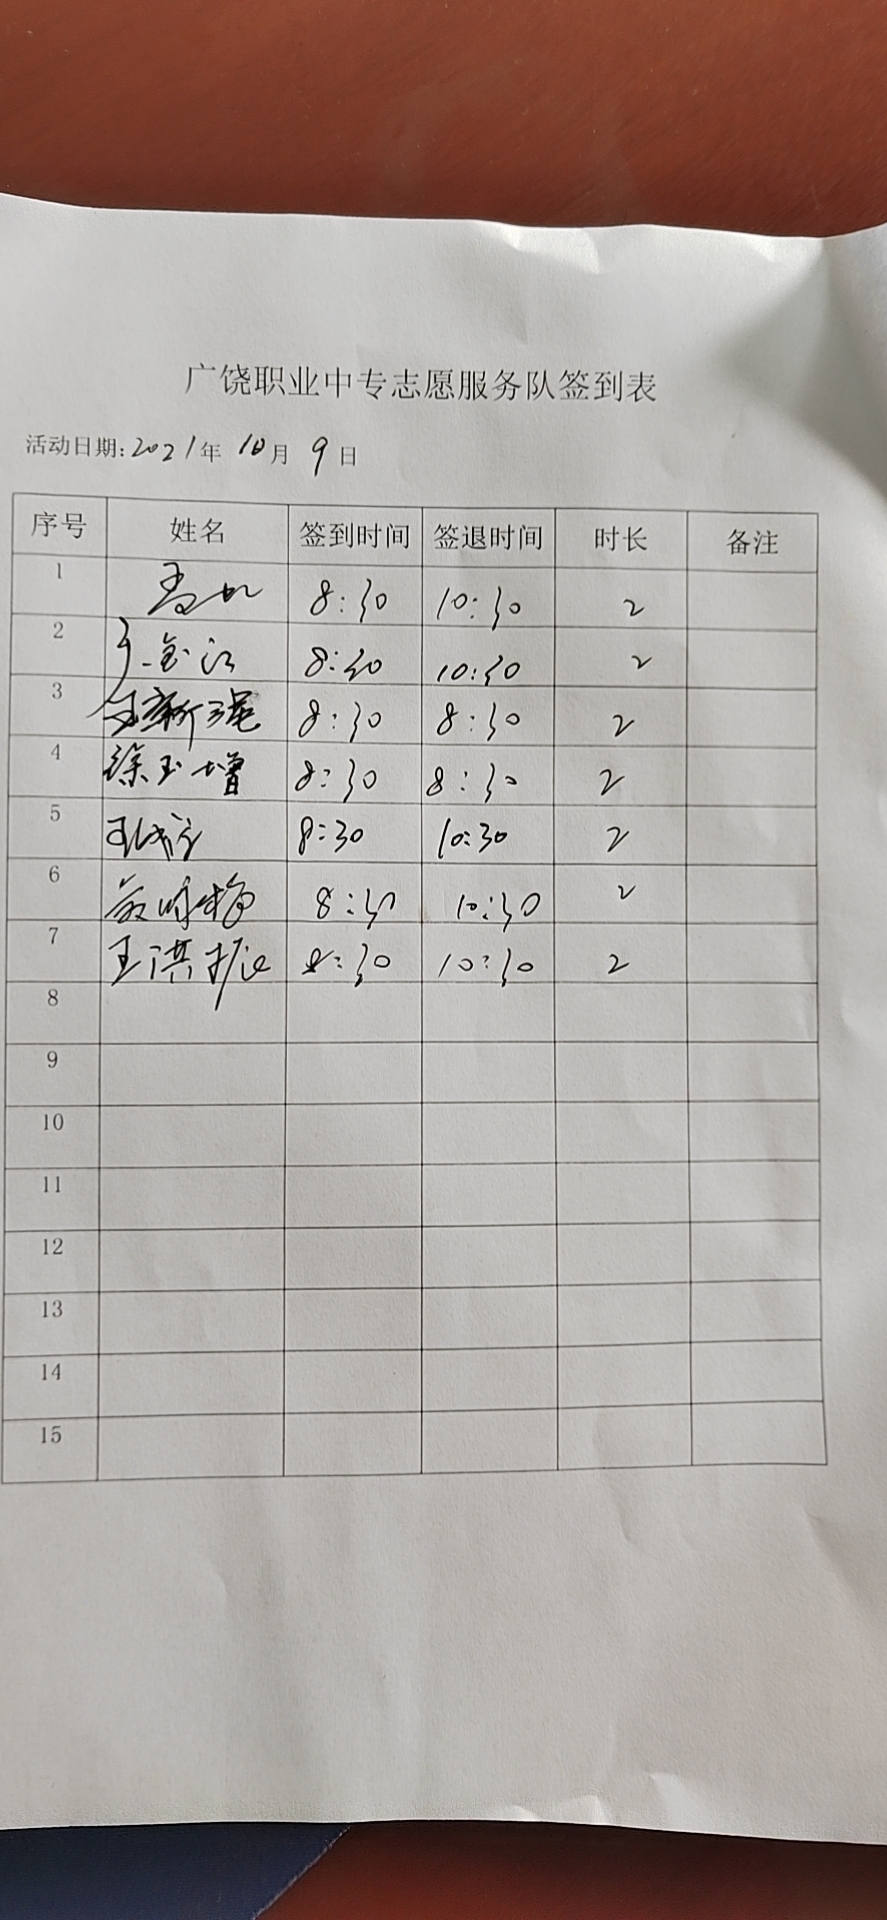 广饶职业中专志愿服务队签到表
活动日期:2021年 10月 9日
序号 姓名 签到时间 签退时间 时长 备注
1 8:30 10:30 2
2 8:30 10:30 2
3 王新强 8:30 8:30 2
4 徐玉增 8:30 8:30 2
5 8:30 10:30 2
6 8:30 10:30 2
7 王洪振 8:30 10:30 2
8
9
10
11
12
13
14
15